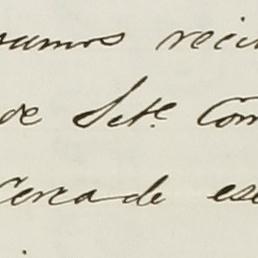 sumos reci
de Sete Com
Cerca de ese